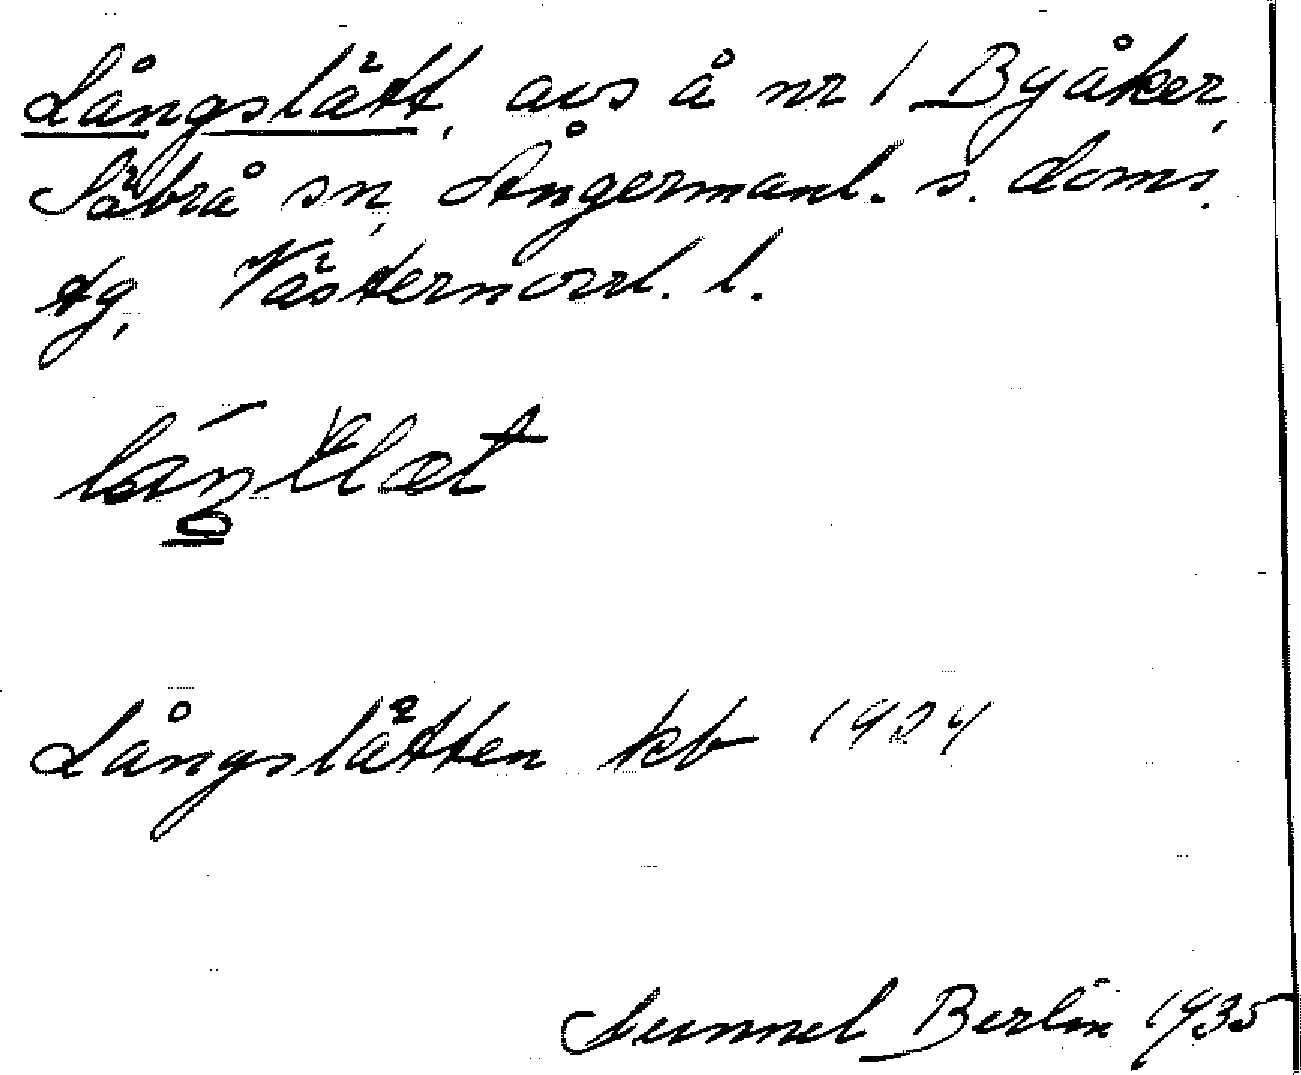 Långslätt, avs å nr 1 Byåker,
Säbrå sn, Ångermanl. s. doms.
tg, Västernorrl. l.
Långslätten kb 1924
Gunnel Berlin 1935